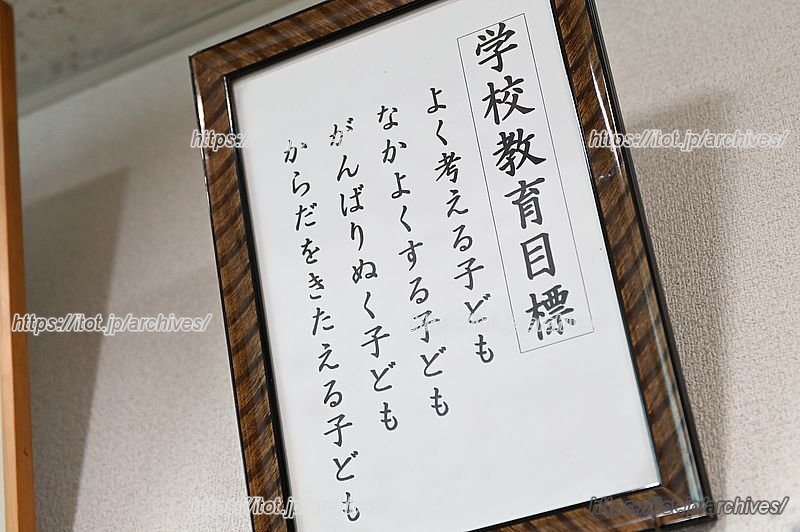 学校教育目標
よく考える子ども
なかよくする子ども
がんばりぬく子ども
からだをきたえる子ども
https://itot.jp/archives/
https://itot.jp/archives/
https://itot.jp/archives/
https://itot.jp/archives/
https://itot.jp/archives/
https://itot.jp/archives/
https://itot.jp/archives/